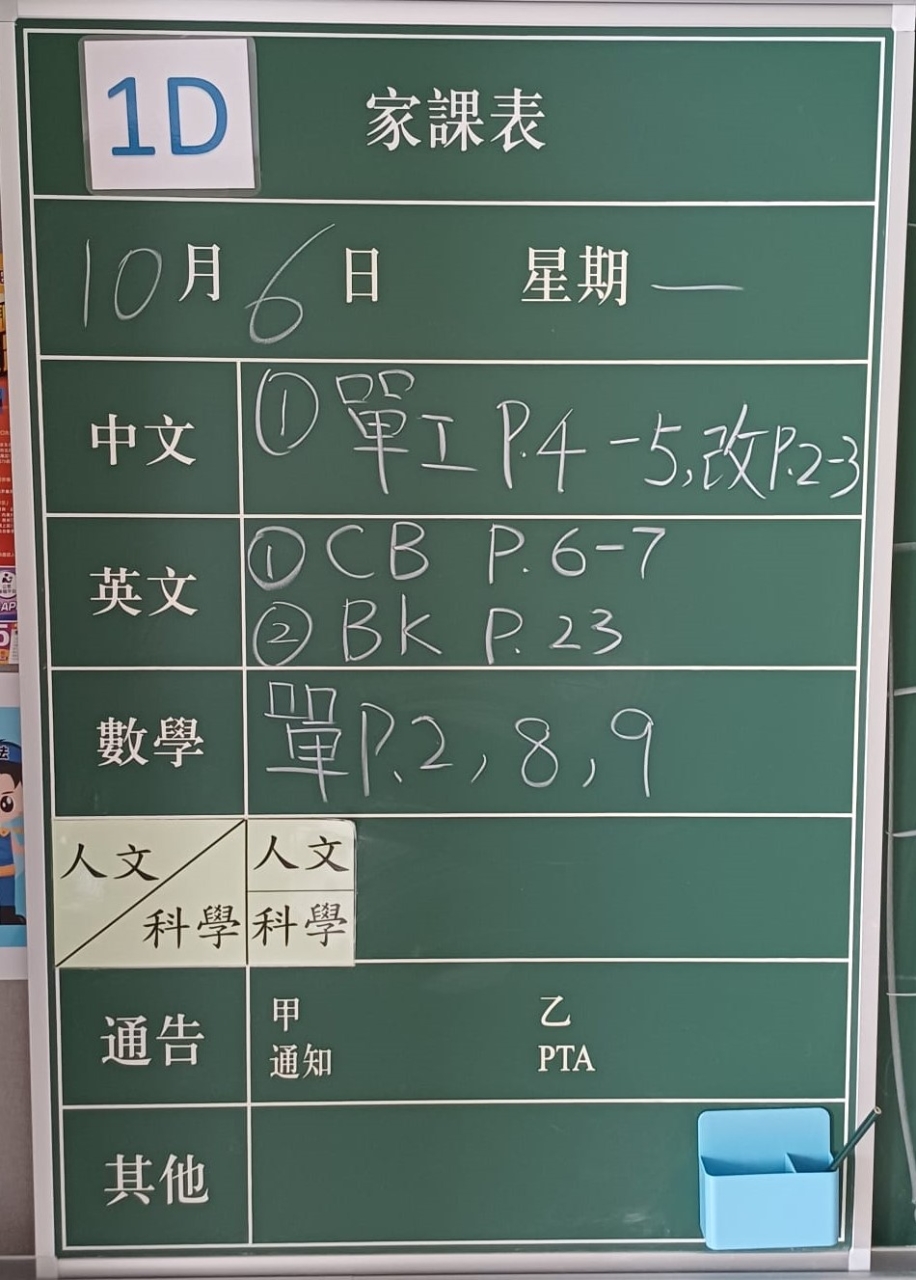 1D
家課表
10月6日 星期一
中文 ①單工 P.4-5,改P.2-3
英文 ①CB P.6-7
②BK P.23
數學 單P.2,8,9
人文 人文
科學 科學
通告 甲 乙
通知 PTA
其他